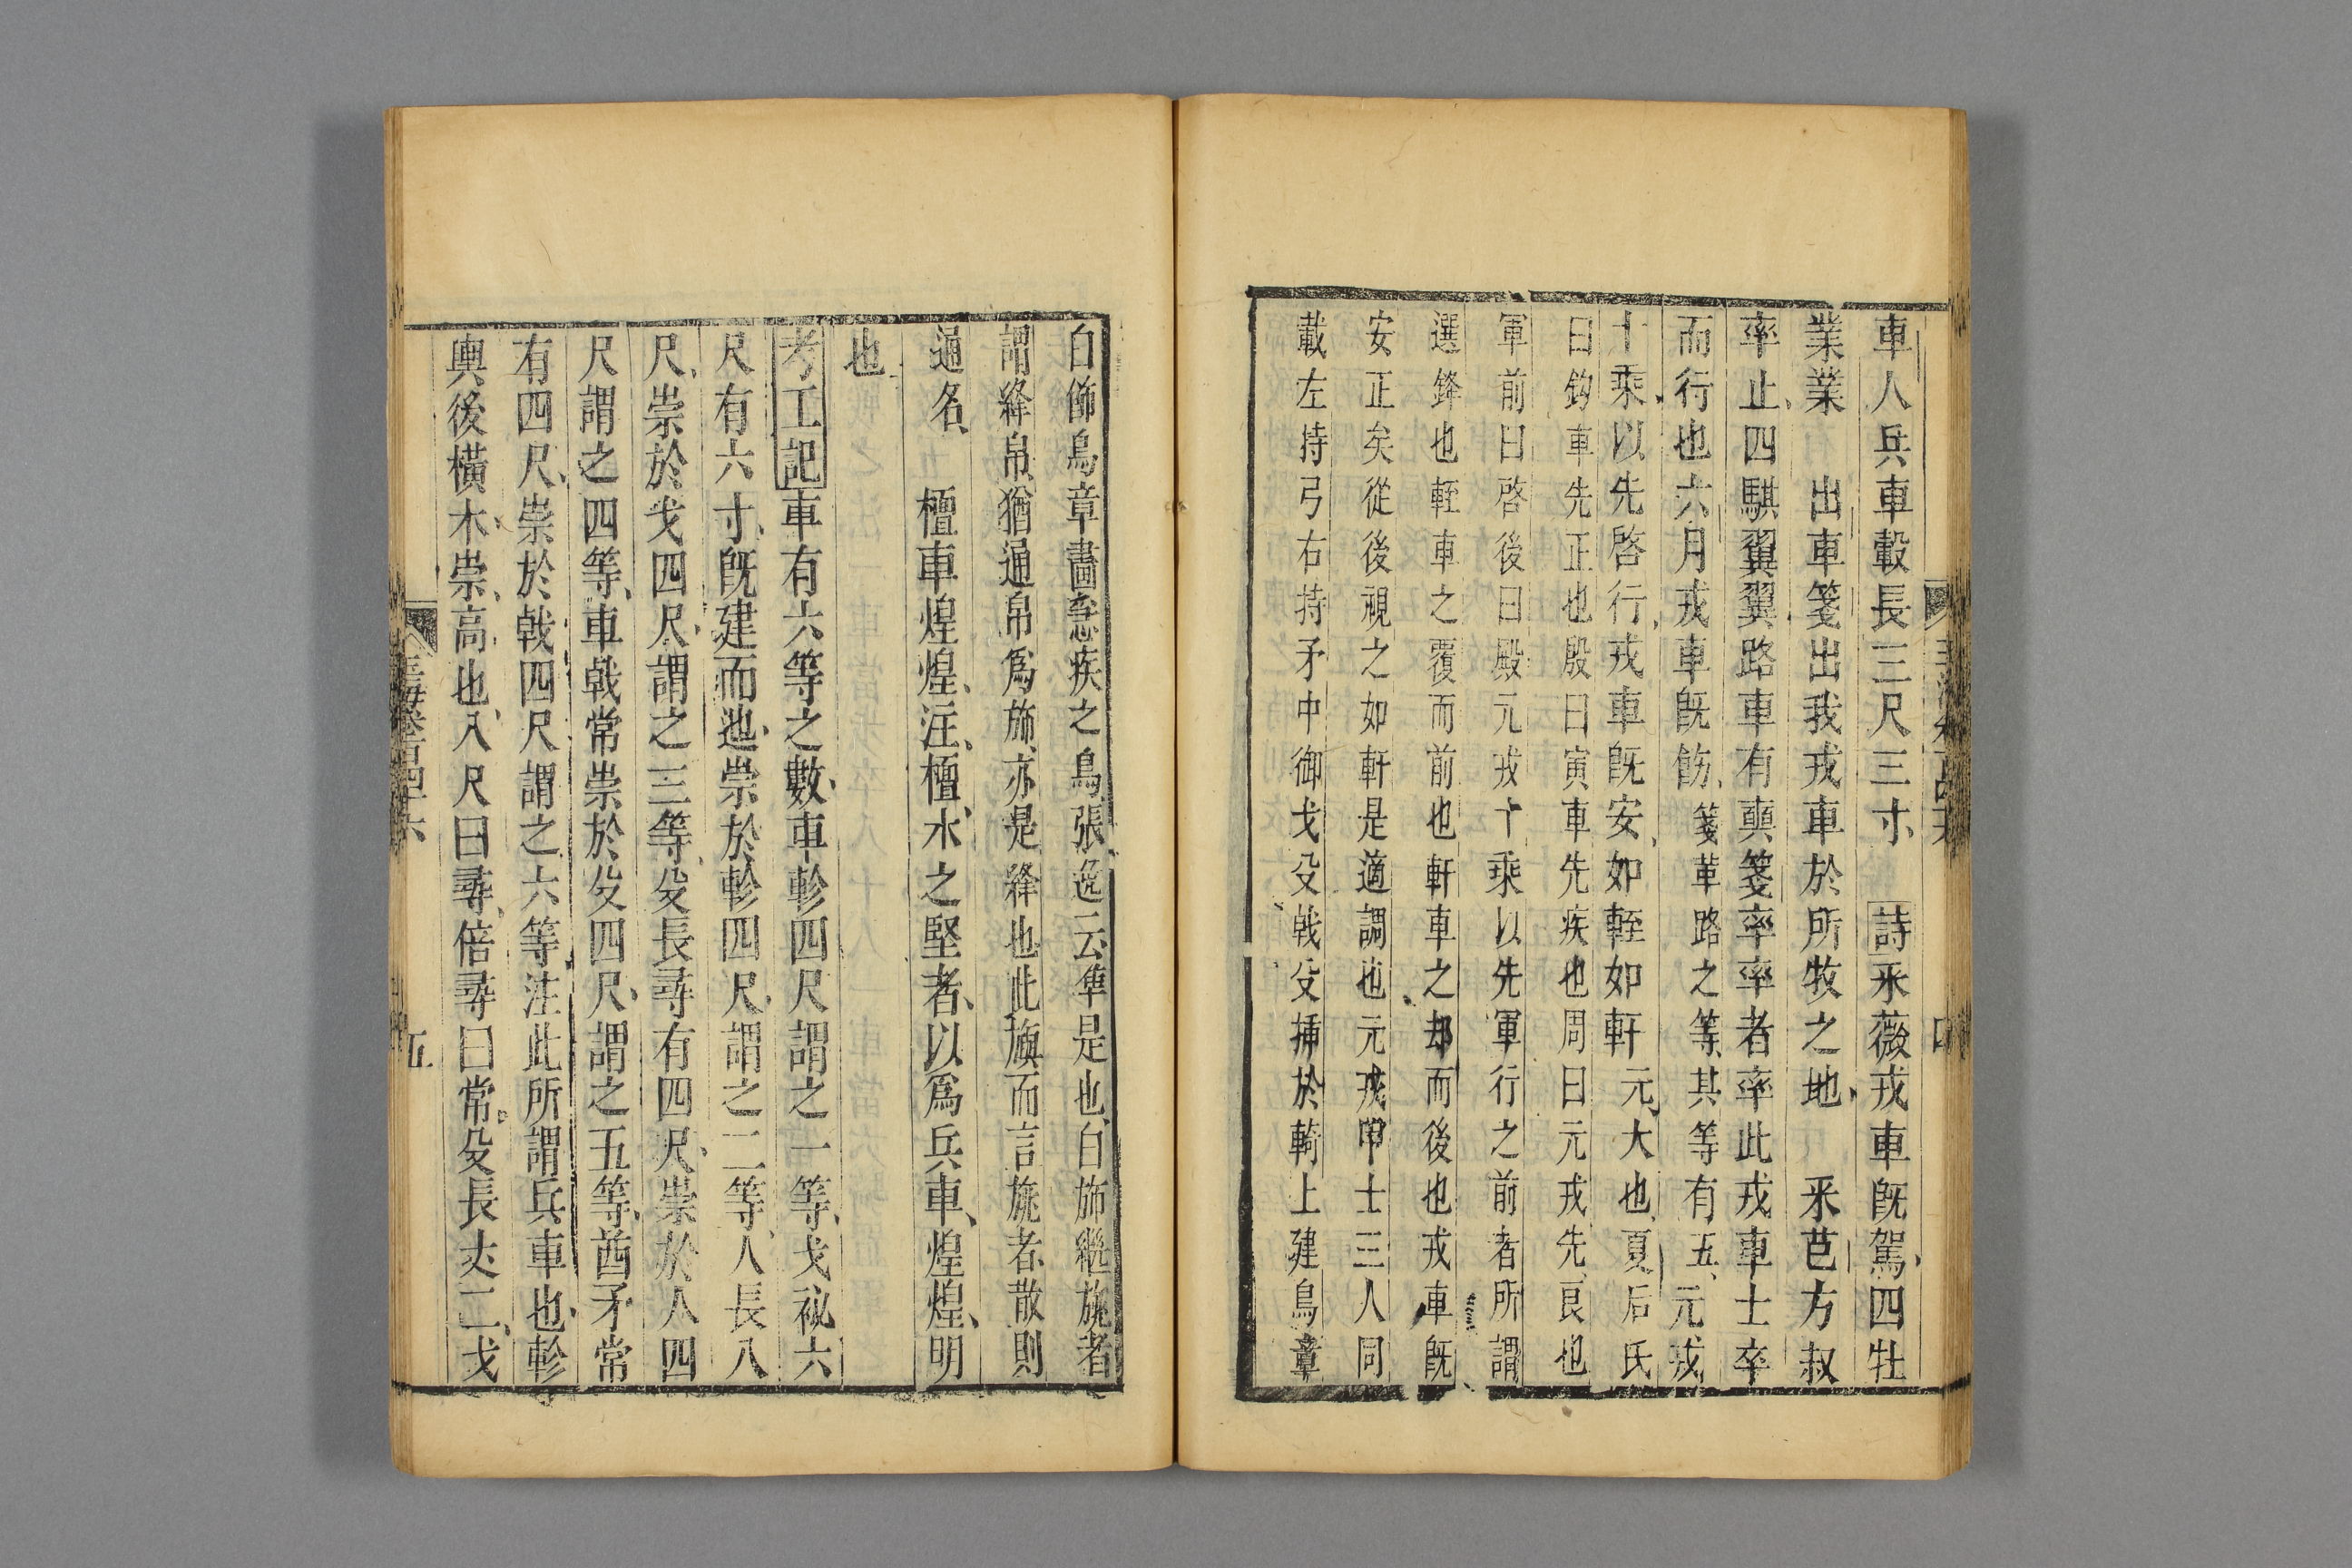 車人兵車轂長三尺三寸　詩采薇戎車旣駕四牡
業業　出車箋出我戎車於所牧之地　采芑方叔
率止四騏翼翼路車有奭箋率率者率此戎車士卒
而行也六月戎車旣飭箋革路之等其等有五元戎
十乘以先啓行戎車旣安如輊如軒元大也夏后氏
曰鈎車先正也殷曰寅車先疾也周曰元戎先良也
軍前曰啓後曰殿元戎十乘以先軍行之前者所謂
選鋒也輊車之覆而前也軒車之却而後也戎車旣
安正矣從後視之如軒是適調也元戎甲士三人同
載左持弓右持矛中御戈殳戟殳揷於輢上建鳥章
白斾鳥章畫急疾之鳥張逸云隼是也白斾繼旐者
謂絳帛猶通帛爲斾亦是絳也此旟而言旐者散則
通名　檀車煌煌注檀木之堅者以爲兵車煌煌明
也
考工記車有六等之數車軫四尺謂之一等戈柲六
尺有六寸旣建而迆崇於軫四尺謂之二等人長八
尺崇於戈四尺謂之三等殳長尋有四尺崇於人四
尺謂之四等車戟常崇於殳四尺謂之五等酋矛常
有四尺崇於戟四尺謂之六等注此所謂兵車也軫
輿後橫木崇高也八尺曰尋倍尋曰常殳長丈二戈
玉海卷百四十六
五